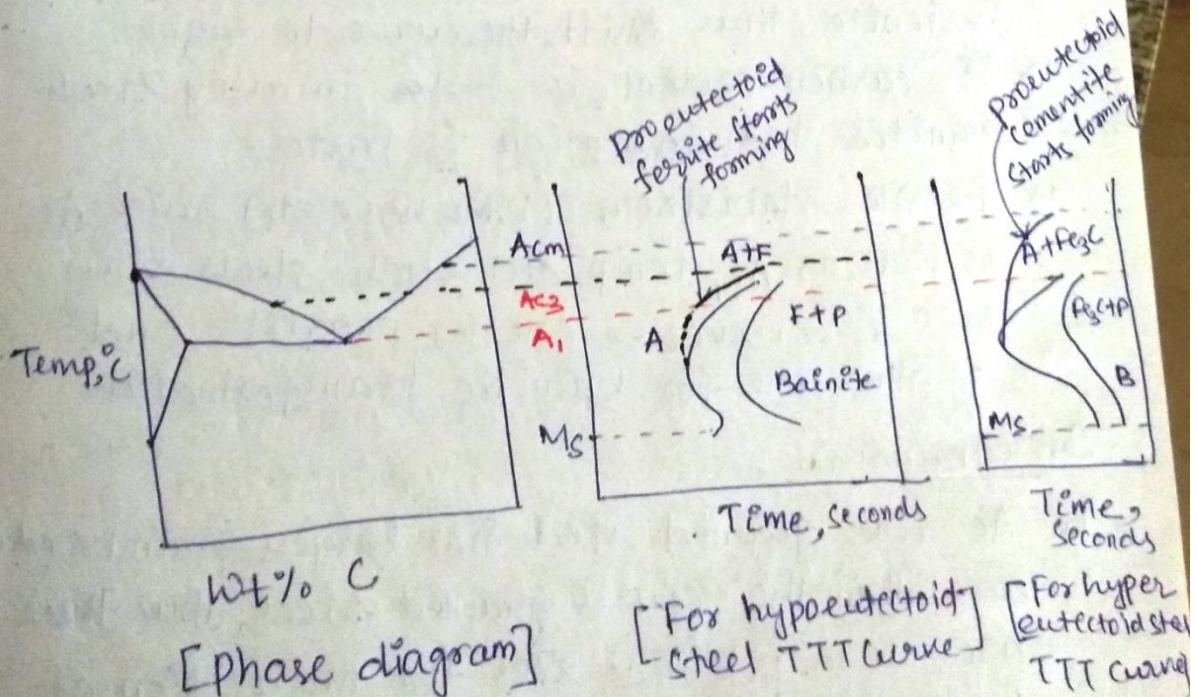 Temp,°C
Wt% C
[Phase diagram]
Acm
Ac3
A1
Proeutectoid
ferrite starts
forming
A+F
A
F+P
Bainite
Ms
Time, seconds
[For hypoeutectoid
steel TTT Curve]
Proeutectoid
cementite
starts forming
A+Fe3C
Fe3C+P
B
Ms
Time,
seconds
[For hyper
eutectoid stee
TTT curve]